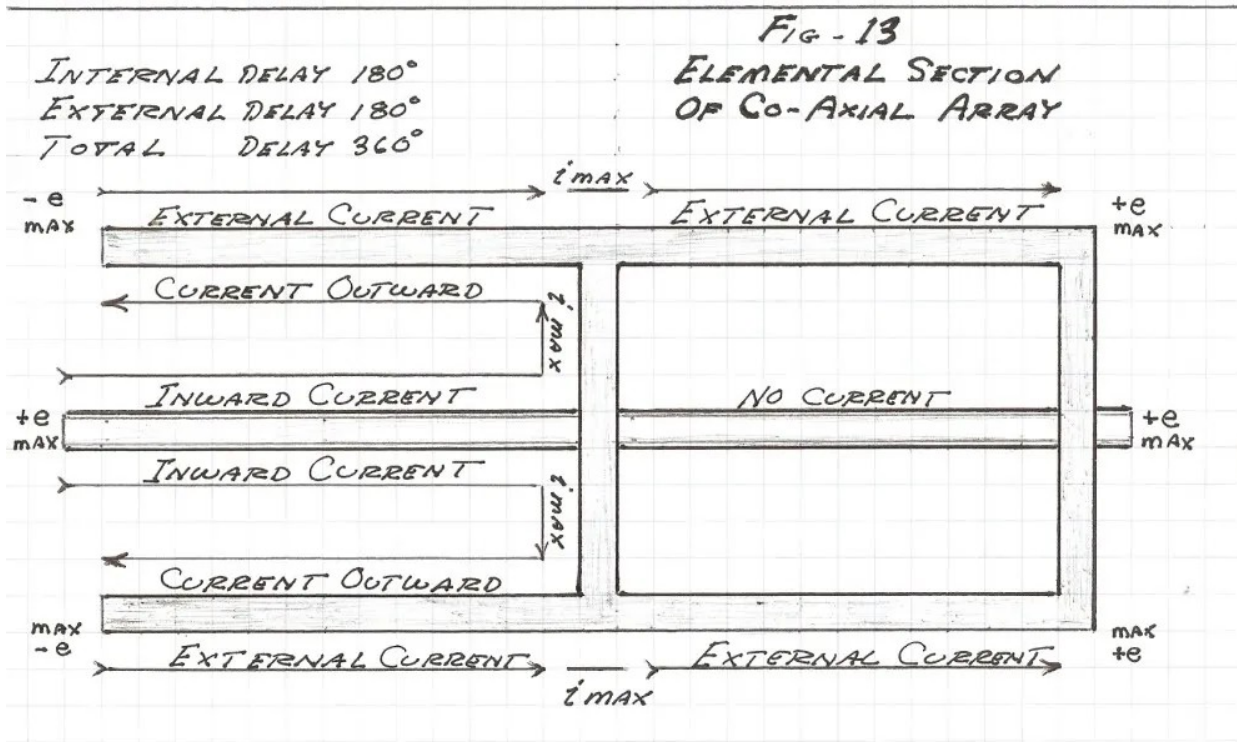 FIG - 13
ELEMENTAL SECTION
OF CO-AXIAL ARRAY
INTERNAL DELAY 180°
EXTERNAL DELAY 180°
TOTAL DELAY 360°
i max
- e
MAX
EXTERNAL CURRENT
EXTERNAL CURRENT
+e
MAX
CURRENT OUTWARD
i max
INWARD CURRENT
NO CURRENT
+e
MAX
+e
MAX
INWARD CURRENT
i max
CURRENT OUTWARD
MAX
-e
EXTERNAL CURRENT
EXTERNAL CURRENT
MAX
+e
i MAX